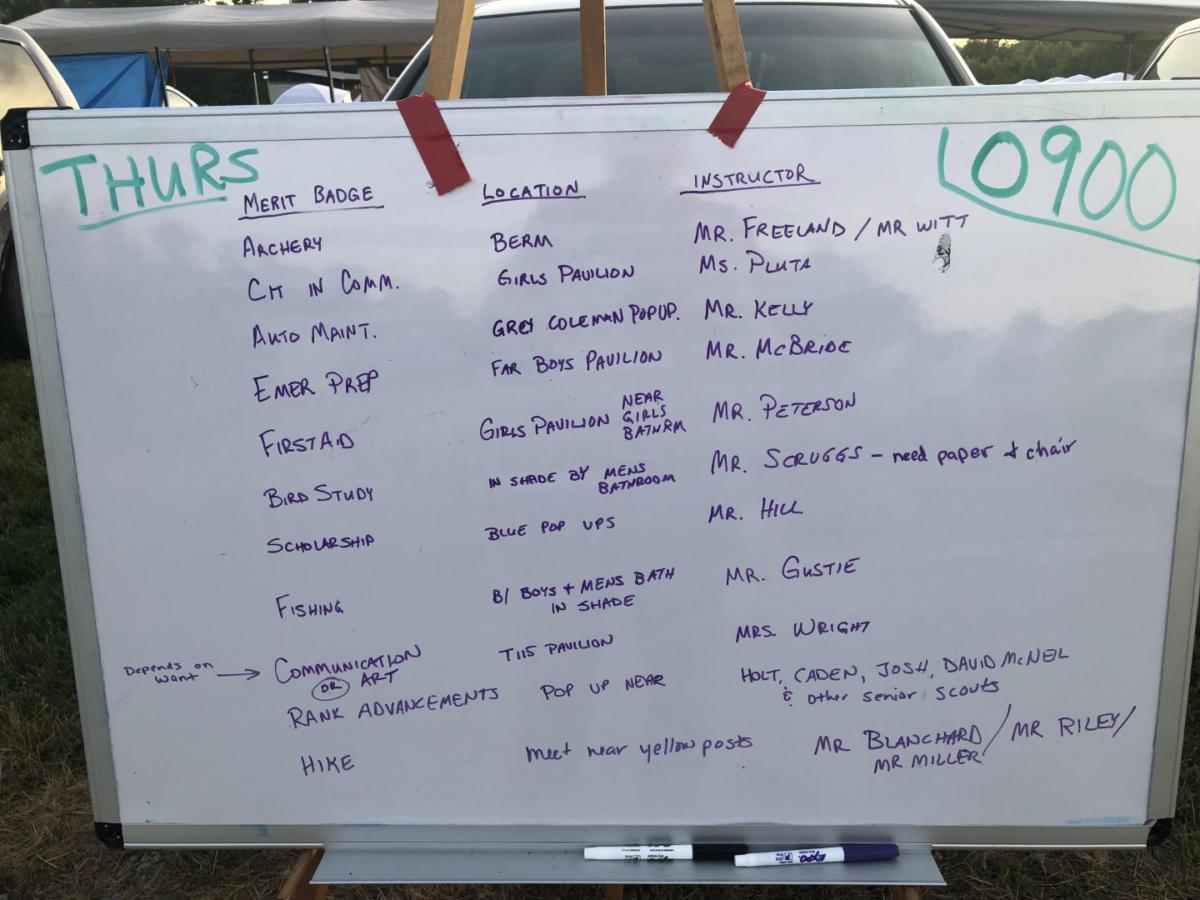 THURS
0900
MERIT BADGE LOCATION INSTRUCTOR
ARCHERY BERM MR. FREELAND / MR WITT
CIT IN COMM. GIRLS PAVILION MS. PLUTA
AUTO MAINT. GREY COLEMAN POPUP. MR. KELLY
EMER PREP FAR BOYS PAVILION MR. MCBRIDE
FIRST AID GIRLS PAVILION NEAR GIRLS BATHRM MR. PETERSON
BIRD STUDY IN SHADE BY MENS BATHROOM MR. SCRUGGS - need paper & chair
SCHOLARSHIP BLUE POP UPS MR. HILL
FISHING B/ BOYS + MENS BATH IN SHADE MR. GUSTIE
Depends on want → COMMUNICATION OR ART T115 PAVILION MRS. WRIGHT
RANK ADVANCEMENTS POP UP NEAR HOLT, CADEN, JOSH, DAVID MCNEL & other senior scouts
HIKE meet near yellow posts MR BLANCHARD / MR RILEY / MR MILLER
EXPO